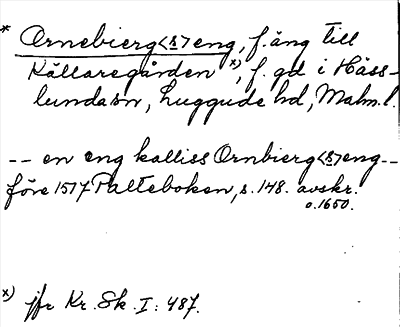 * Ornebierg<s>eng, f. äng till
Källaregården x), f. gd i Häss-
lundasn, Luggude hd, Malm.l.
-- en eng kalliss Ornbierg<s>eng--
före 1517 Palteboken, s. 148. avskr.
o. 1650.
x) jfr Kr. Sk. I: 487.